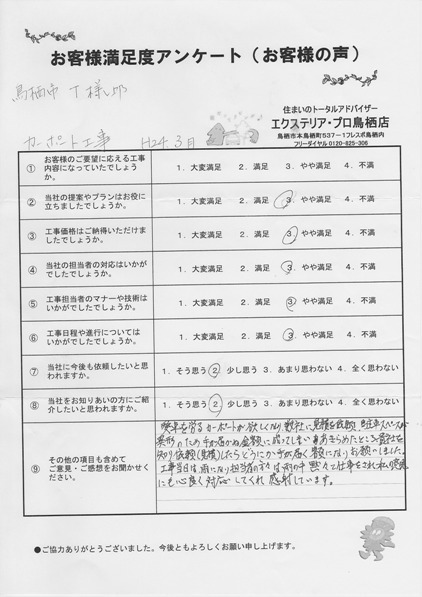 お客様満足度アンケート（お客様の声）
鳥栖市 T様邸
住まいのトータルアドバイザー
エクステリア・プロ鳥栖店
鳥栖市本鳥栖町537-1フレスポ鳥栖内
フリーダイヤル0120-825-306
カーポート工事 H24.3月
① お客様のご要望に応える工事内容になっていたでしょうか。 1．大変満足 2．満足 3．やや満足 4．不満
② 当社の提案やプランはお役に立ちましたでしょうか。 1．大変満足 2．満足 3．やや満足 4．不満
③ 工事価格はご納得いただけましたでしょうか。 1．大変満足 2．満足 3．やや満足 4．不満
④ 当社の担当者の対応はいかがでしたでしょうか。 1．大変満足 2．満足 3．やや満足 4．不満
⑤ 工事担当者のマナーや技術はいかがでしたでしょうか。 1．大変満足 2．満足 3．やや満足 4．不満
⑥ 工事日程や進行についてはいかがでしたでしょうか。 1．大変満足 2．満足 3．やや満足 4．不満
⑦ 当社に今後も依頼したいと思われますか。 1．そう思う 2．少し思う 3．あまり思わない 4．全く思わない
⑧ 当社をお知りあいの方にご紹介したいと思われますか。 1．そう思う 2．少し思う 3．あまり思わない 4．全く思わない
⑨ その他の項目も含めてご意見・ご感想をお聞かせください。
カーポートが欲しくなり数社に見積を依頼、駐車スペースが
のため手が届かぬ金額に成ってしまい あきらめたところ貴社を
知り依頼(見積)したらどうにか手が届く額になりお願いしました。
工事当日は雨になり担当の方々は雨の中 黙々と仕事をされ
にも心良く対応してくれ 感謝しています。
●ご協力ありがとうございました。今後ともよろしくお願い申し上げます。